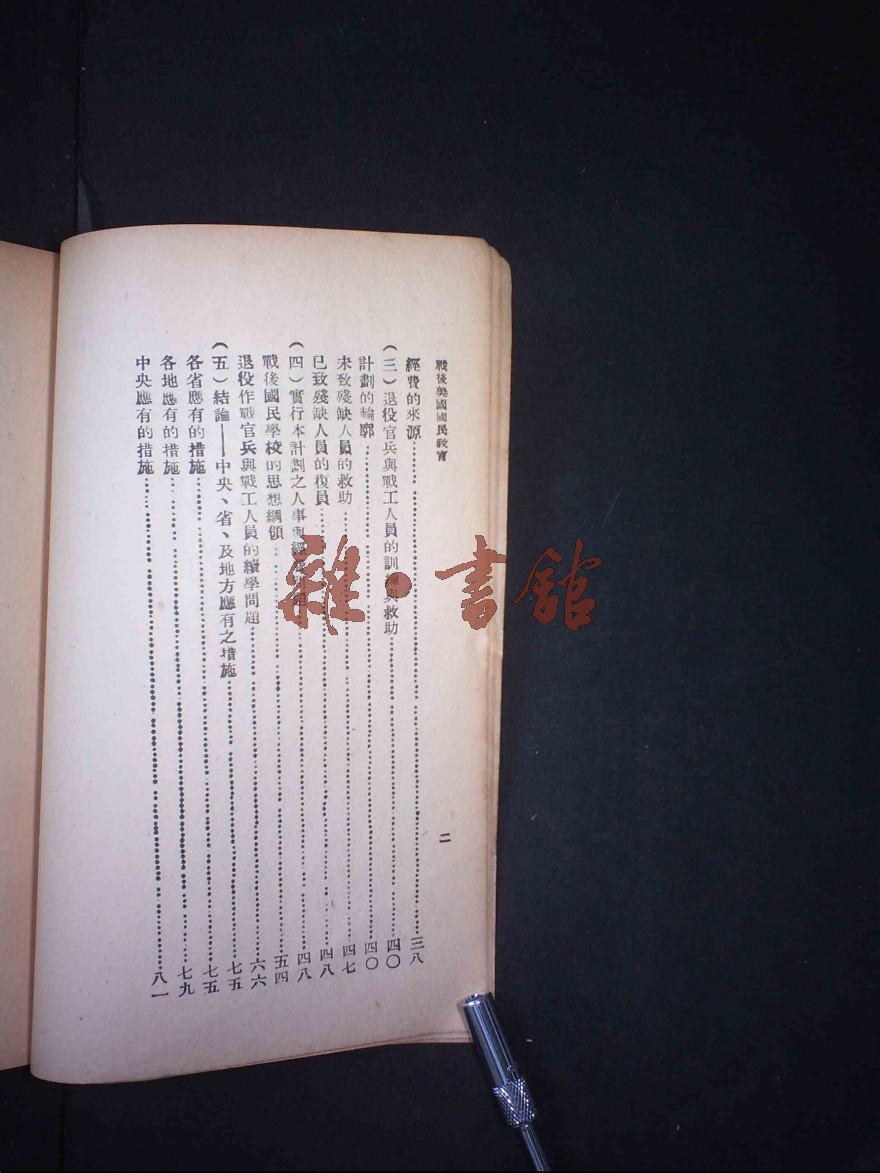 戰後美國國民敎育
二
經費的來源……三八
(三)退役官兵與戰工人員的訓練與救助……四〇
計劃的輪廓……四〇
未致殘缺人員的救助……四七
已致殘缺人員的復員……四八
(四)實行本計劃之人事與經……四八
戰後國民學校的思想綱領……五四
退役作戰官兵與戰工人員的續學問題……六六
(五)結論——中央、省、及地方應有之措施……七五
各省應有的措施……七五
各地應有的措施……七九
中央應有的措施……八一
雜·書館